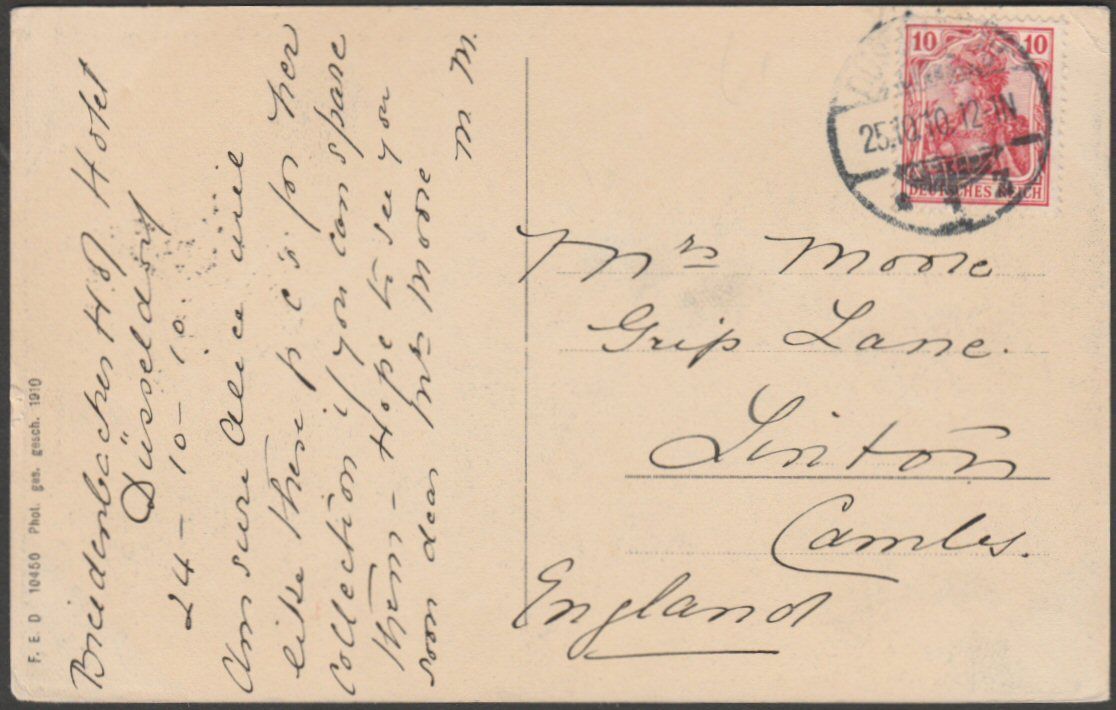 Breidenbacher Hof Hotel
Düsseldorf
24 – 10 – 10.
Am sure Alice will
like these p c's for her
collection if you can spare
them – Hope to see you
soon dear Mrs Moore
M M.
F. E. D 10450 Phot. ges. gesch. 1910
10 10
DEUTSCHES REICH
25.10.10. 12-1N
Mrs Moore
Grip Lane.
Linton
Cambs.
England